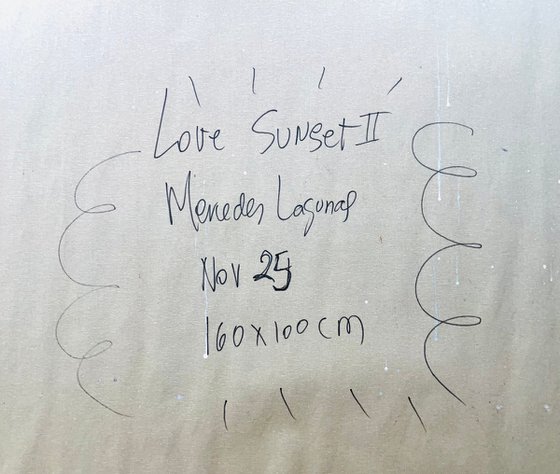 Love Sunset II
Mercedes Lagunas
Nov 25
160x100cm